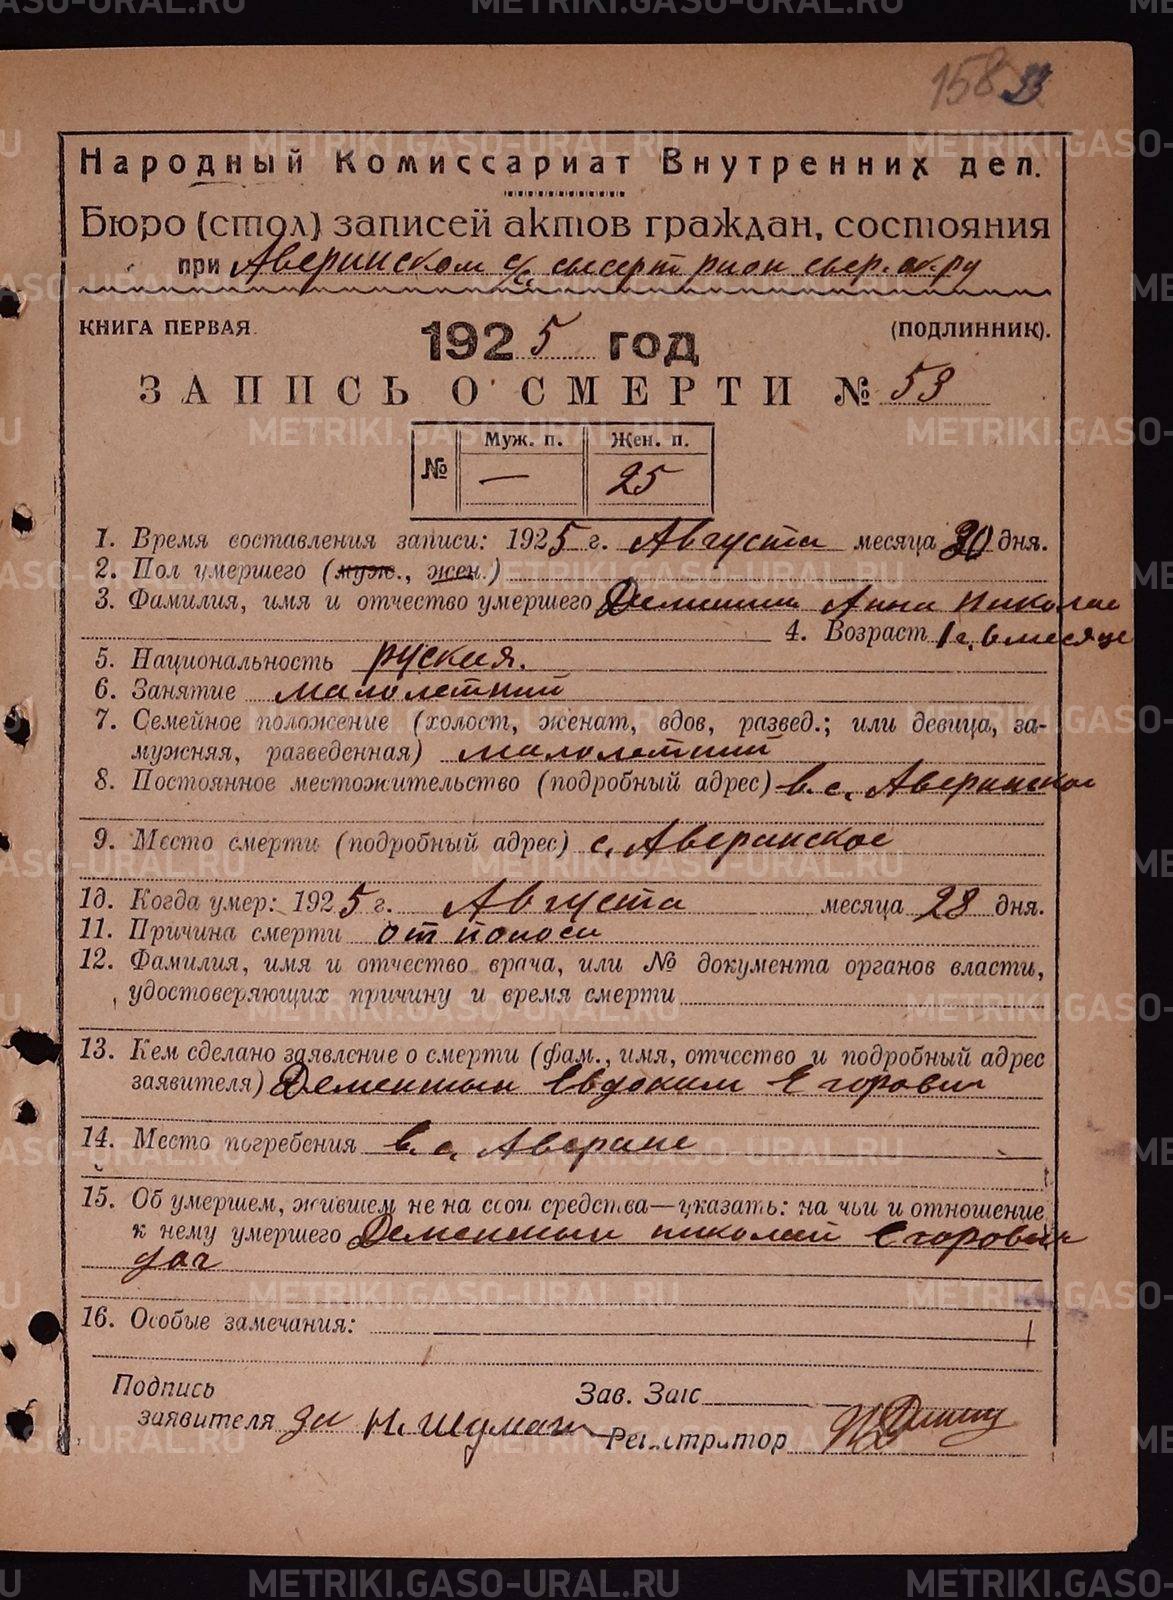 158 33
Народный Комиссариат Внутренних дел.
Бюро (стол) записей актов граждан, состояния
при Аверинском с/с сысерт рион свер. ок-ру
КНИГА ПЕРВАЯ. 1925 год (ПОДЛИННИК).
ЗАПИСЬ О СМЕРТИ № 53
№ Муж. п. — Жен. п. 25
1. Время составления записи: 1925 г. Августа месяца 30 дня.
2. Пол умершего (муж., жен.)
3. Фамилия, имя и отчество умершего Анна Николае
4. Возраст 1 г. 6 месяце
5. Национальность руская.
6. Занятие малолетний
7. Семейное положение (холост, женат, вдов, развед.; или девица, за-
мужняя, разведенная) малолетний
8. Постоянное местожительство (подробный адрес) в. с. Аверинское
9. Место смерти (подробный адрес) с. Аверинское
10. Когда умер: 1925 г. Августа месяца 28 дня.
11. Причина смерти от поноса
12. Фамилия, имя и отчество врача, или № документа органов власти,
удостоверяющих причину и время смерти
13. Кем сделано заявление о смерти (фам., имя, отчество и подробный адрес
заявителя) Дементьин Евдоким Егорович
14. Место погребения в. с. Аверине
15. Об умершем, жившем не на свои средства—указать: на чьи и отношение
к нему умершего Дементьин николай Егорович
доч
16. Особые замечания:
Подпись Зав. Загс
заявителя за Н. Регистратор
METRIKI.GASO-URAL.RU